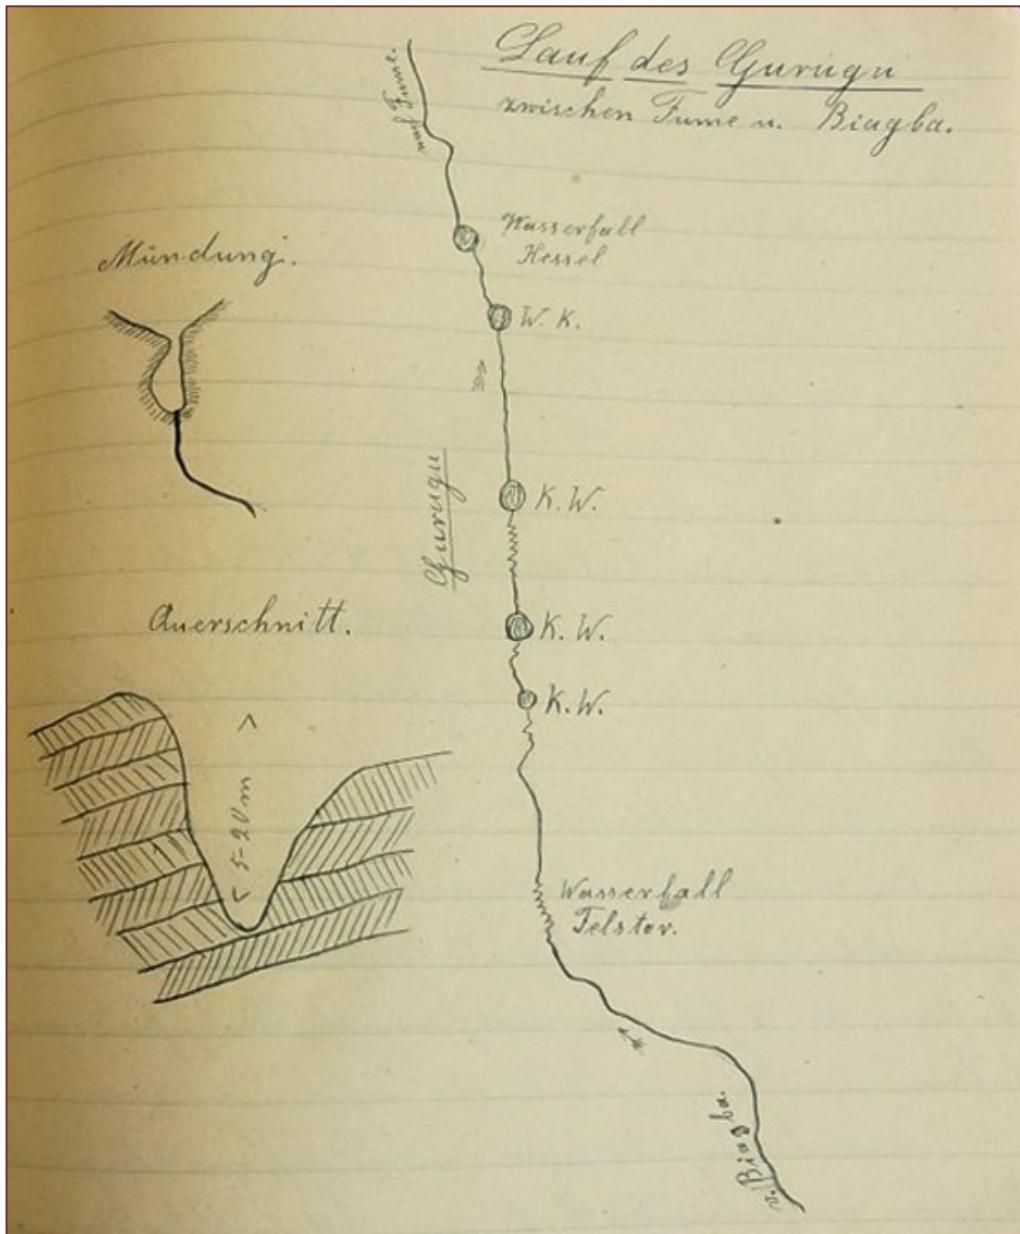 Lauf des Gurugu
zwischen Fume u. Biagba.
nach Fume.
Wasserfall
Kessel
Mündung.
W. K.
Gurugu
K. W.
Querschnitt.
K. W.
K. W.
< 5-20m >
Wasserfall
Felstor.
v. Biagba.